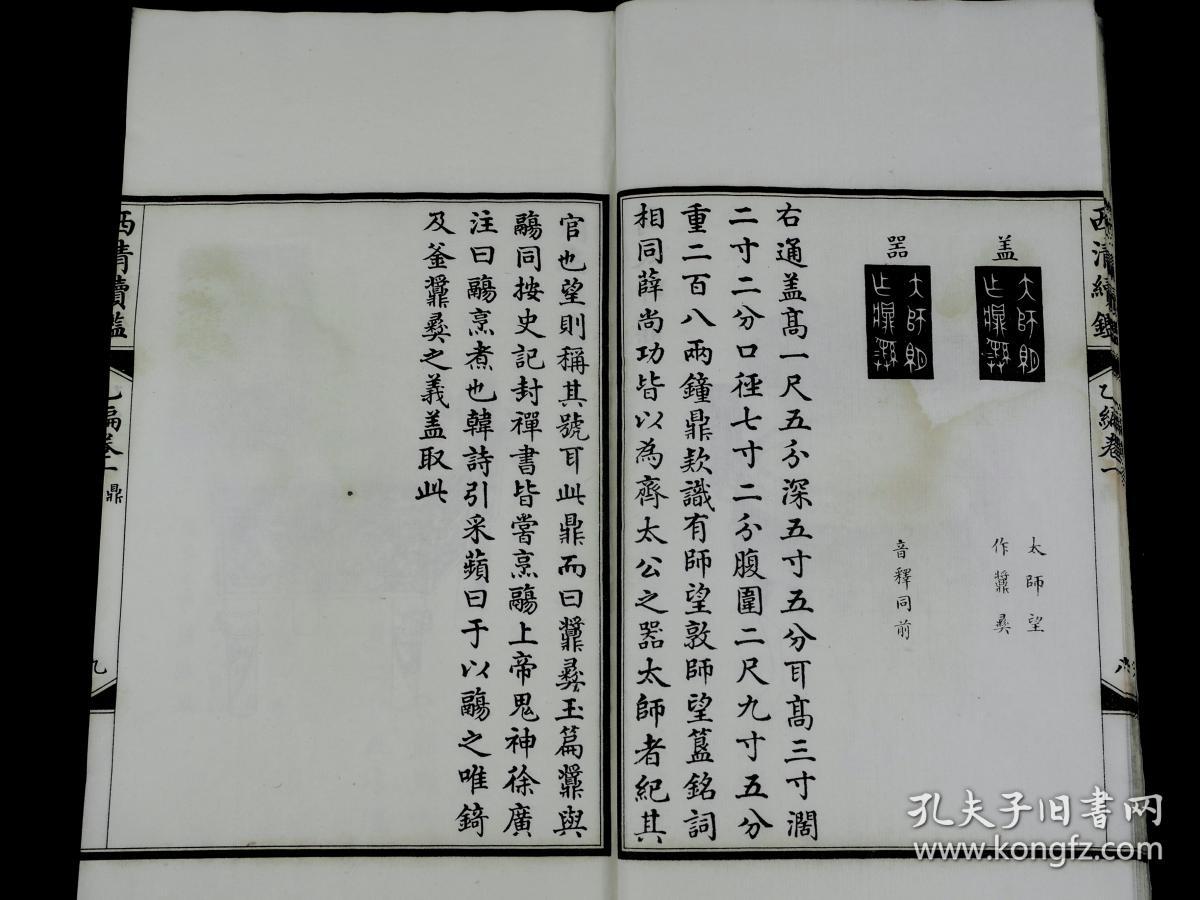 西清續鑑
乙編卷一
蓋
大師望
作𩱧彝
太師望
作𩱧彝
器
大師望
作𩱧彝
音釋同前
右通盖高一尺五分深五寸五分耳高三寸濶
二寸二分口徑七寸二分腹圍二尺九寸五分
重二百八兩鐘鼎欵識有師望敦師望簋銘詞
相同薛尚功皆以為齊太公之器太師者紀其
官也望則稱其號耳此鼎而曰𩱧彝玉篇𩱧與
鬺同按史記封禪書皆嘗烹鬺上帝鬼神徐廣
注曰鬺烹煮也韓詩引采蘋曰于以鬺之唯錡
及釜𩱧彝之義盖取此
西清續鑑
乙編卷一
鼎
孔夫子旧书网
www.kongfz.com